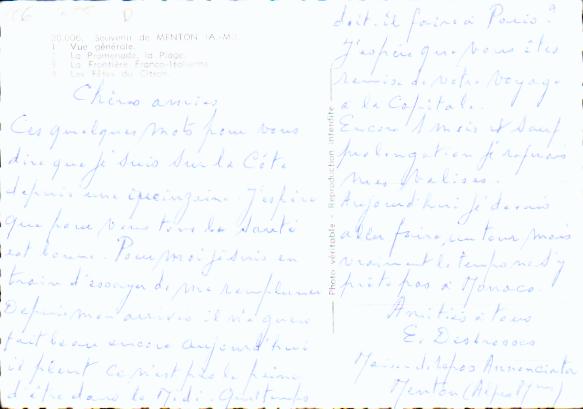 20.006. Souvenir de MENTON (A.-M.)
1 Vue générale.
2 La Promenade, la Plage.
3 La Frontière Franco-Italienne.
4 Les Fêtes du Citron.
Chères amies
Ces quelques mots pour vous
dire que je suis sur la Côte
depuis une quinzaine. J'espère
que pour vous tous la santé
est bonne. Pour moi je suis en
train d'essayer de me remplumer
Depuis mon arrivée il n'a guère
fait beau encore aujourd'hui
il pleut ce n'est pas la peine
d'être dans le Midi. Quel temps
doit-il faire à Paris ?
J'espère que vous êtes
remise de votre voyage
à la Capitale.
Encore 1 mois et sauf
prolongation je refais
mes valises.
Aujourd'hui je devais
aller faire un tour mais
vraiment le temps ne s'y
prête pas à Monaco.
Amitiés à tous
E.
Maison de repos Annonciata
Menton (Alpes Mmes)
Photo véritable - Reproduction interdite